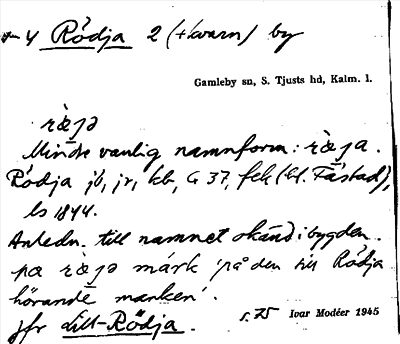 4 Rödja 2 (+kvarn) by
Gamleby sn, S. Tjusts hd, Kalm. l.
ræ̀jə
Mindre vanlig namnform: ræ̀ja.
Rödja jb, jr, kb, G 37, fek (Ed. Fåstad),
ls 1844.
Anledn. till namnet okänd i bygden.
pa ræ̀jə märk 'på den till Rödja
hörande marken'.
jfr Lill-Rödja.
s. 75 Ivar Modéer 1945